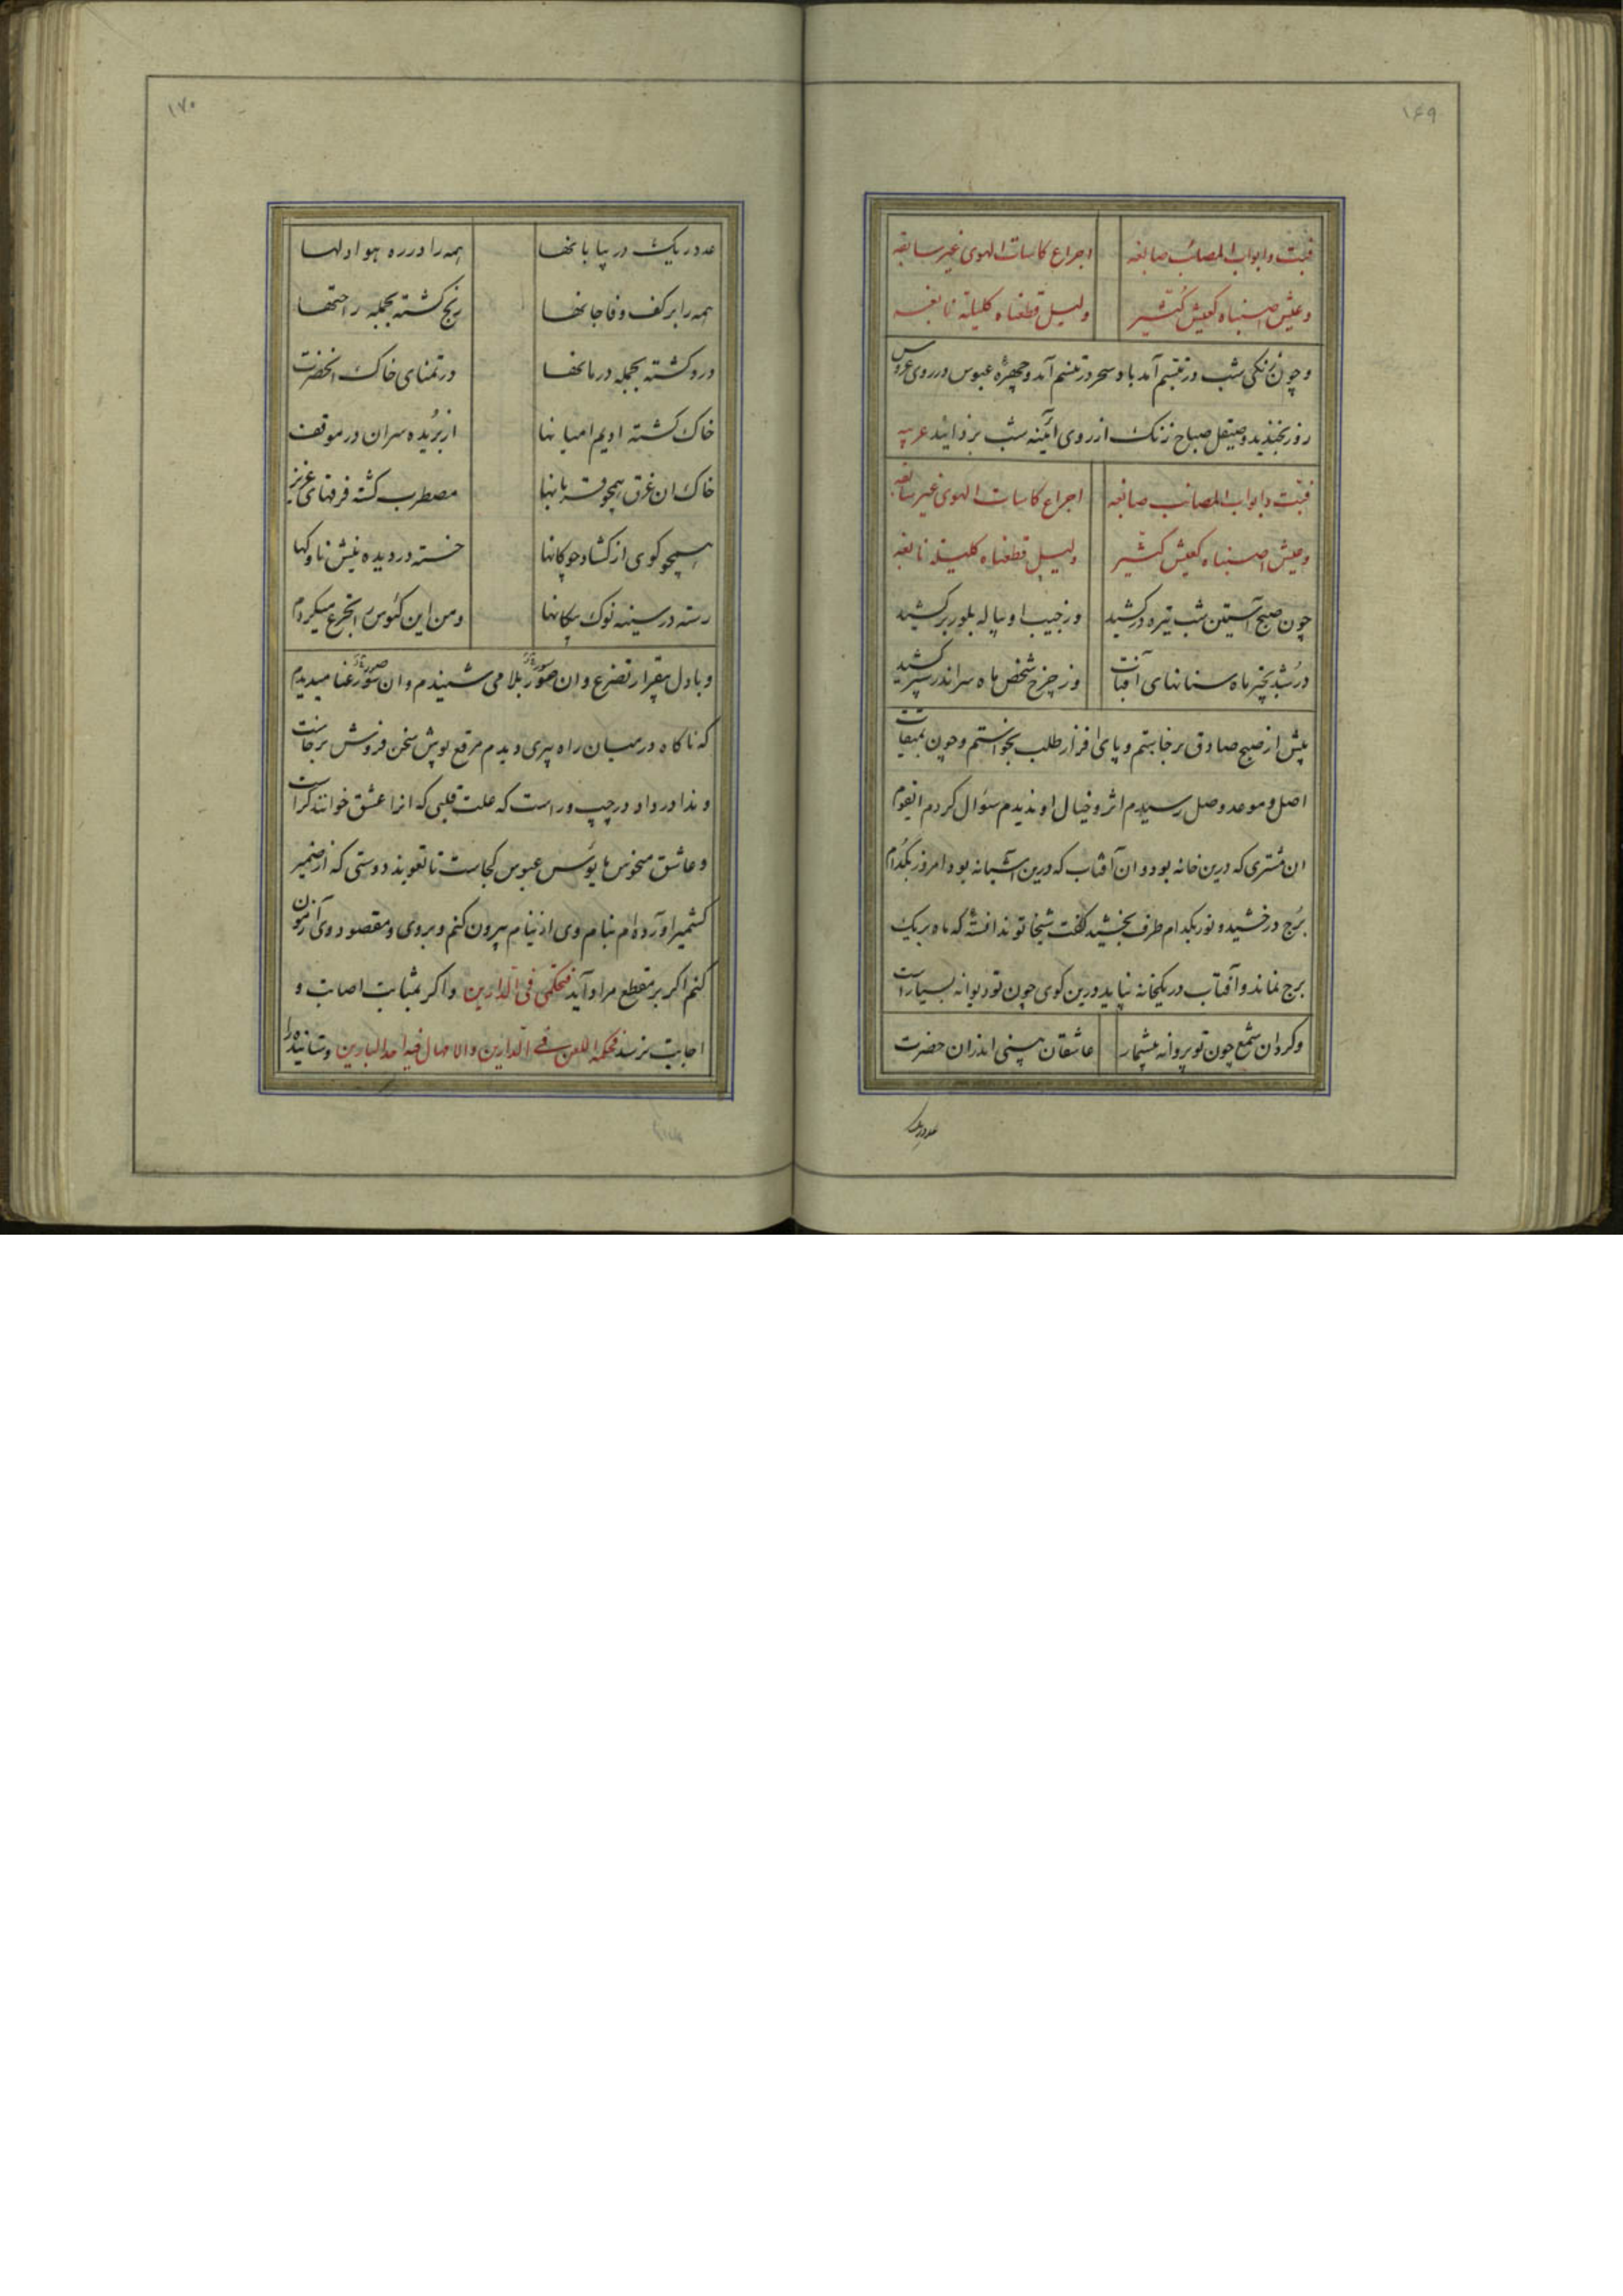 ۱۶۹
فبتّ وابواب المصائب صابغه اجراع کاسات الهوی غیر سابغه
وعیش اصبناه کعیش کثیر ولیل قطعناه کلیلة نابغه
و چون زنکی شب در تبسّم آمد باد سحر در تنسّم آمد و چهرهٔ عبوس در روی عروس
روز بخندید و صیقل صباح زنک از روی آئینه شب بزدائید عربیه
فبتّ وابواب المصائب صابغه اجراع کاسات الهوی غیر سابغه
وعیش اصبناه کعیش کثیر ولیل قطعناه کلیلة نابغه
چون صبح آستین شب تیره درکشید وز جیب او پیاله بلور برکشید
در شد بخیر ماه سنانهای آفتاب وز چرخ شخص ماه سر اندر سپر کشید
پیش از صبح صادق برخاستم و پای افزار طلب بخواستم و چون بمیقات
اصل و موعد وصل رسیدم اثر و خیال او ندیدم سئوال کردم ایقوم
ان مشتری که درین خانه بود و ان آفتاب که درین آشیانه بود امروز بکدام
برج درخشید و نور بکدام طرف بخشید گفت شیخا تو ندانستهٔ که ماه بریک
برج نماند و آفتاب در یکخانه نپاید درین کوی چون تو دیوانه بسیار است
و کرد ان شمع چون تو پروانه بیشمار عاشقان بینی اندران حضرت
عدد ریک
۱۷۰
عدد ریک در بیابانها همه را در ره هوا دلها
همه را بر کف وفا جانها رنج کشته بجمله راحتها
درد کشته بجمله درمانها در تمنای خاک انحضرت
خاک کشته ادیم امیانها از بریده سران در موقف
خاک ان غرق همچو قربانها مضطرب کشته فرقهای عزیز
همچو کوی از کشاد چوکانها خسته در دیده نیش ناوکها
رسته در سینه نوک پیکانها و من این کئوس را تجرع میکردم
و با دل بیقرار تضرع و ان صور بلا می شنیدم و ان سور غنا میدیدم
که ناکاه در میان راه پیری دیدم مرقع پوش سخن فروش برخاست
و ندا در داد در چپ و راست که علت قلبی که انرا عشق خوانند کراست
و عاشق منحوس مایوس عبوس کجاست تا تعویذ دوستی که از ضمیر
کشمیر آورده ام بنام وی از نیام بیرون کنم و بروی و مقصود وی آزمون
کنم اکر بر مقطع مراد آید فتحکمی فی الدارین و اکر بمثابت اصابت و
اجابت نرسد فحکمه اللعن فی الدارین والامهال فیه احد البارین و ستانیده را